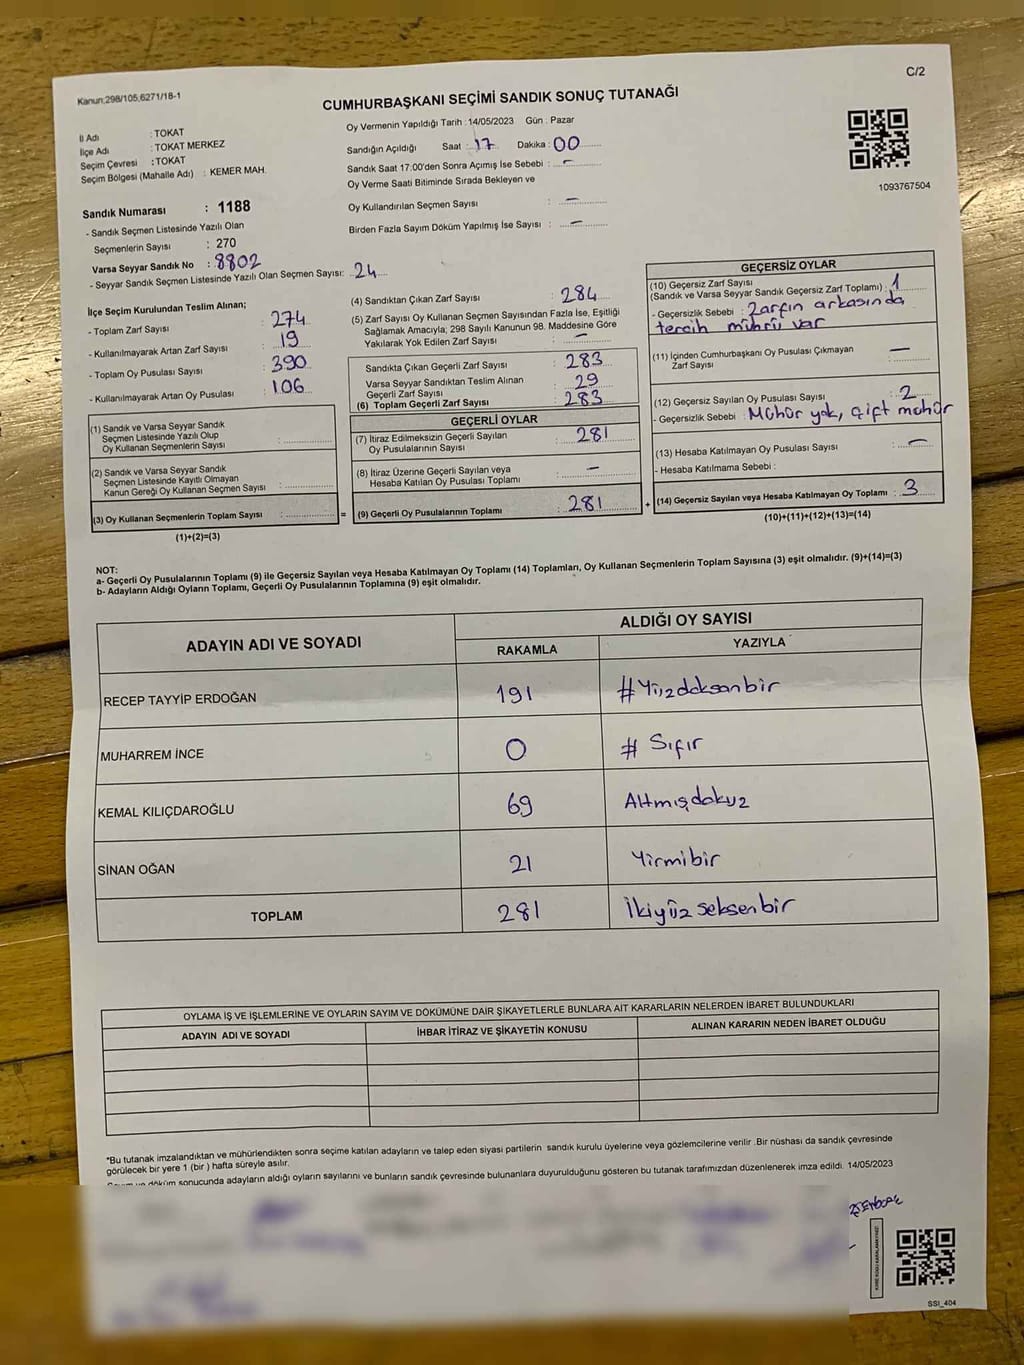 Kanun;298/105,6271/18-1
C/2
CUMHURBAŞKANI SEÇİMİ SANDIK SONUÇ TUTANAĞI
İl Adı : TOKAT
İlçe Adı : TOKAT MERKEZ
Seçim Çevresi : TOKAT
Seçim Bölgesi (Mahalle Adı) : KEMER MAH.
Oy Vermenin Yapıldığı Tarih : 14/05/2023 Gün : Pazar
Sandığın Açıldığı Saat : 17 Dakika : 00
Sandık Saat 17:00'den Sonra Açımış İse Sebebi : -
Oy Verme Saati Bitiminde Sırada Bekleyen ve
Oy Kullandırılan Seçmen Sayısı : -
Birden Fazla Sayım Döküm Yapılmış İse Sayısı : -
1093767504
Sandık Numarası : 1188
- Sandık Seçmen Listesinde Yazılı Olan
Seçmenlerin Sayısı : 270
Varsa Seyyar Sandık No : 8802
- Seyyar Sandık Seçmen Listesinde Yazılı Olan Seçmen Sayısı: 24
İlçe Seçim Kurulundan Teslim Alınan;
- Toplam Zarf Sayısı : 274
- Kullanılmayarak Artan Zarf Sayısı : 19
- Toplam Oy Pusulası Sayısı : 390
- Kullanılmayarak Artan Oy Pusulası : 106
(1) Sandık ve Varsa Seyyar Sandık
Seçmen Listesinde Yazılı Olup
Oy Kullanan Seçmenlerin Sayısı :
(2) Sandık ve Varsa Seyyar Sandık
Seçmen Listesinde Kayıtlı Olmayan
Kanun Gereği Oy Kullanan Seçmen Sayısı :
(3) Oy Kullanan Seçmenlerin Toplam Sayısı : =
(1)+(2)=(3)
(4) Sandıktan Çıkan Zarf Sayısı : 284
(5) Zarf Sayısı Oy Kullanan Seçmen Sayısından Fazla İse, Eşitliği
Sağlamak Amacıyla; 298 Sayılı Kanunun 98. Maddesine Göre
Yakılarak Yok Edilen Zarf Sayısı : -
Sandıkta Çıkan Geçerli Zarf Sayısı : 283
Varsa Seyyar Sandıktan Teslim Alınan
Geçerli Zarf Sayısı : 29
(6) Toplam Geçerli Zarf Sayısı : 283
GEÇERLİ OYLAR
(7) İtiraz Edilmeksizin Geçerli Sayılan
Oy Pusulalarının Sayısı : 281
(8) İtiraz Üzerine Geçerli Sayılan veya
Hesaba Katılan Oy Pusulası Toplamı : -
(9) Geçerli Oy Pusulalarının Toplamı : 281 +
GEÇERSİZ OYLAR
(10) Geçersiz Zarf Sayısı
(Sandık ve Varsa Seyyar Sandık Geçersiz Zarf Toplamı) : 1
- Geçersizlik Sebebi : Zarfın arkasında
tercih mührü var
(11) İçinden Cumhurbaşkanı Oy Pusulası Çıkmayan
Zarf Sayısı : -
(12) Geçersiz Sayılan Oy Pusulası Sayısı : 2
- Geçersizlik Sebebi : Mühür yok, çift mühür
(13) Hesaba Katılmayan Oy Pusulası Sayısı : -
- Hesaba Katılmama Sebebi :
(14) Geçersiz Sayılan veya Hesaba Katılmayan Oy Toplamı : 3
(10)+(11)+(12)+(13)=(14)
NOT:
a- Geçerli Oy Pusulalarının Toplamı (9) ile Geçersiz Sayılan veya Hesaba Katılmayan Oy Toplamı (14) Toplamları, Oy Kullanan Seçmenlerin Toplam Sayısına (3) eşit olmalıdır. (9)+(14)=(3)
b- Adayların Aldığı Oyların Toplamı, Geçerli Oy Pusulalarının Toplamına (9) eşit olmalıdır.
ADAYIN ADI VE SOYADI
ALDIĞI OY SAYISI
RAKAMLA YAZIYLA
RECEP TAYYİP ERDOĞAN 191 #Yüzdoksanbir
MUHARREM İNCE 0 # Sıfır
KEMAL KILIÇDAROĞLU 69 Altmışdokuz
SİNAN OĞAN 21 Yirmibir
TOPLAM 281 İkiyüzseksenbir
OYLAMA İŞ VE İŞLEMLERİNE VE OYLARIN SAYIM VE DÖKÜMÜNE DAİR ŞİKAYETLERLE BUNLARA AİT KARARLARIN NELERDEN İBARET BULUNDUKLARI
ADAYIN ADI VE SOYADI İHBAR İTİRAZ VE ŞİKAYETİN KONUSU ALINAN KARARIN NEDEN İBARET OLDUĞU
*Bu tutanak imzalandıktan ve mühürlendikten sonra seçime katılan adayların ve talep eden siyasi partilerin sandık kurulu üyelerine veya gözlemcilerine verilir .Bir nüshası da sandık çevresinde
görülecek bir yere 1 (bir ) hafta süreyle asılır.
Sayım ve döküm sonucunda adayların aldığı oyların sayılarını ve bunların sandık çevresinde bulunanlara duyurulduğunu gösteren bu tutanak tarafımızdan düzenlenerek imza edildi. 14/05/2023
SSI_404